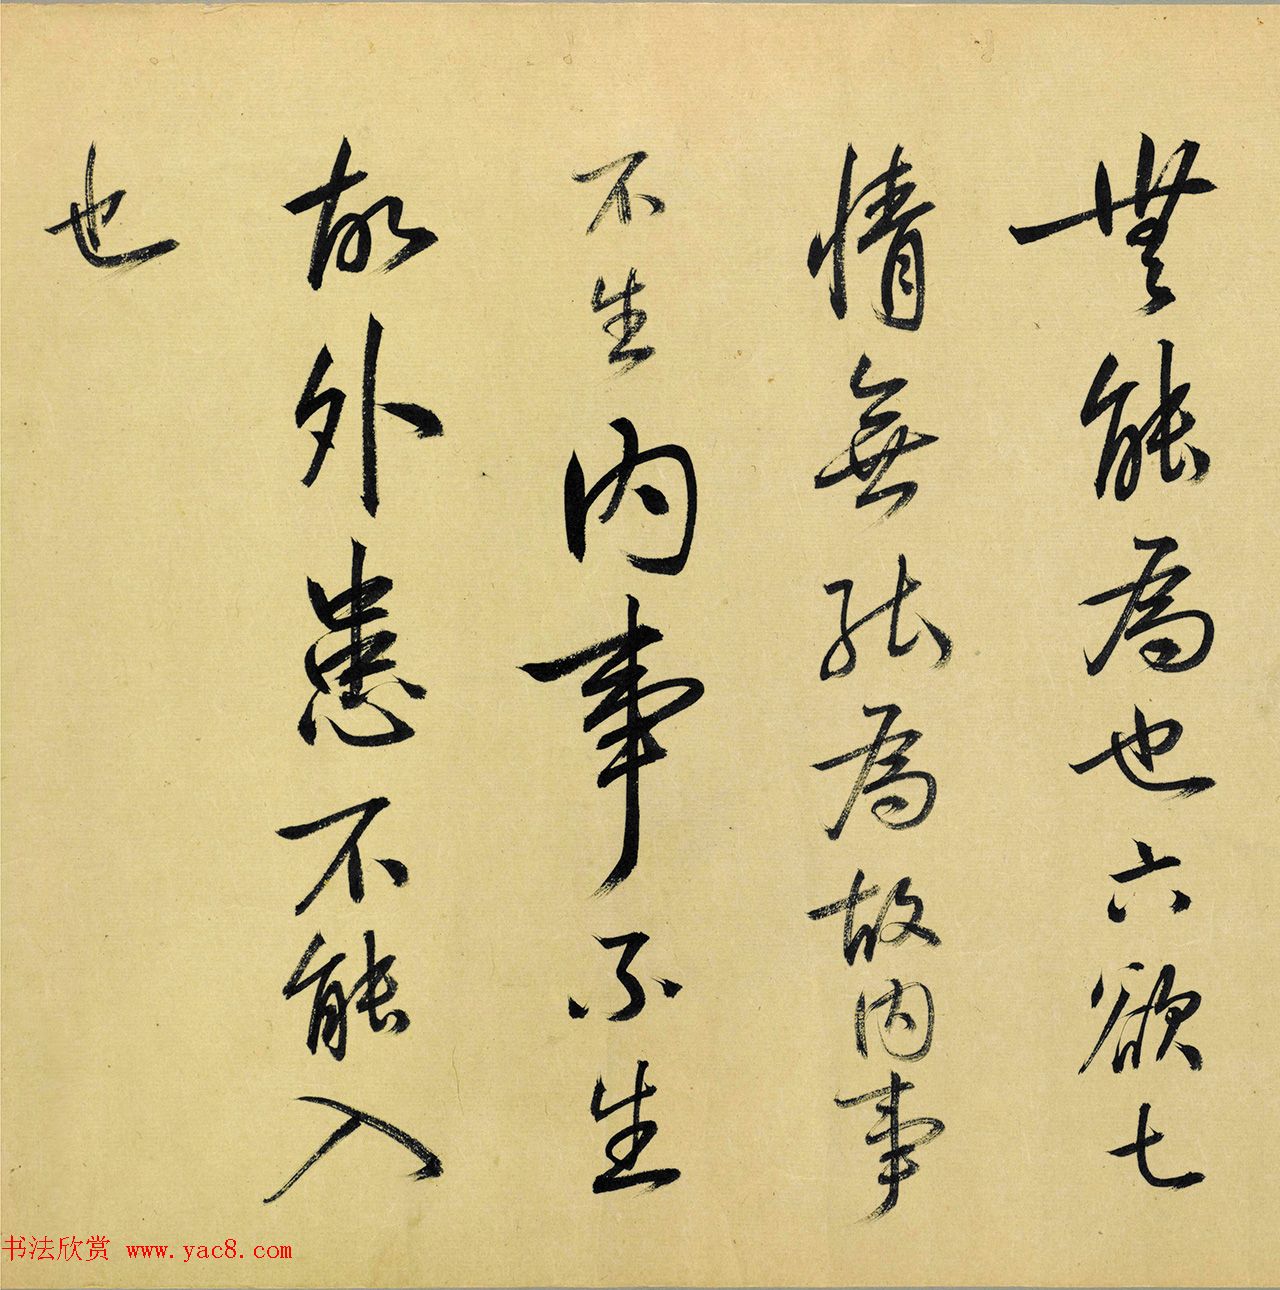 無能為也六欲七
情無能為故内事
不生内事不生
故外患不能入
也
书法欣赏 www.yac8.com